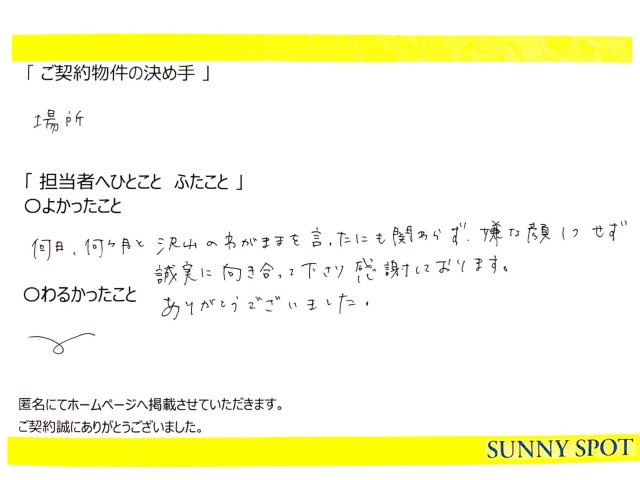 「 ご契約物件の決め手 」
場所
「 担当者へひとこと ふたこと 」
○よかったこと
何日、何ヶ月と 沢山のわがままを言ったにも関わらず、嫌な顔1つせず
誠実に向き合って下さり感謝しております。
○わるかったこと
ありがとうございました。
匿名にてホームページへ掲載させていただきます。
ご契約誠にありがとうございました。
SUNNY SPOT